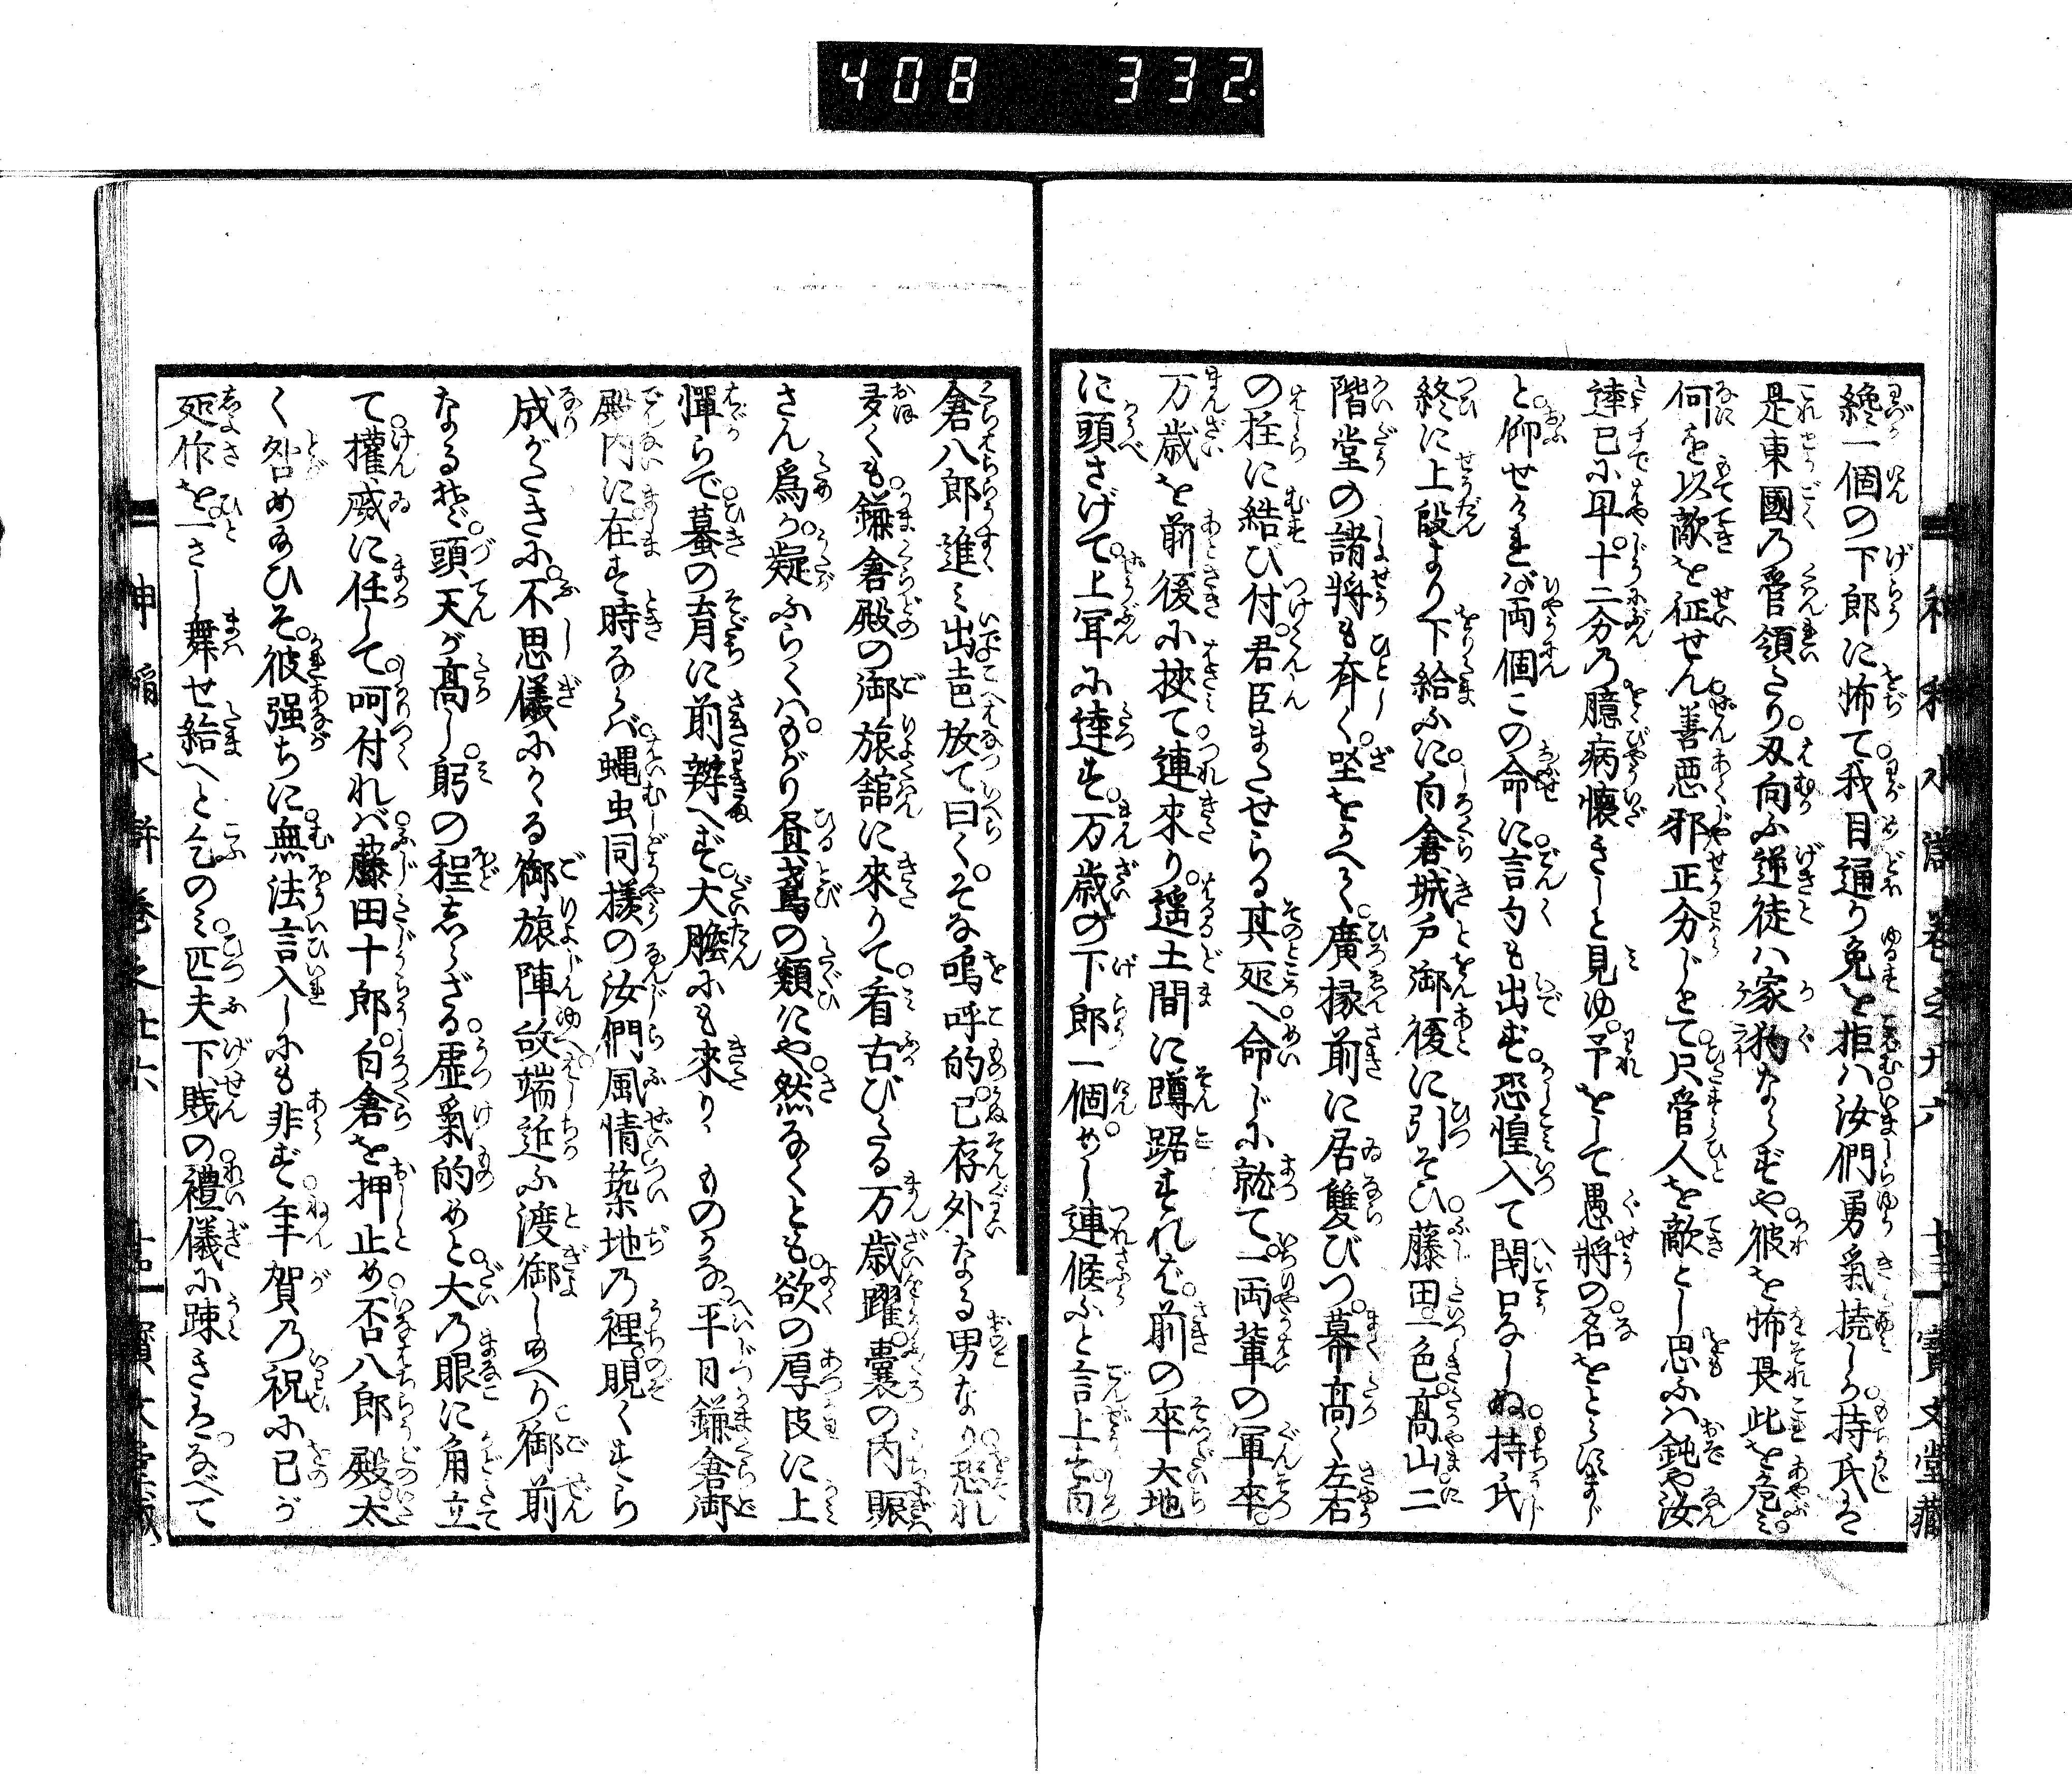 408 332
纔一個の下郎に怖て我目通り免を拒ハ汝們勇氣撓しか持氏は
是東國の管領たり。刃向ふ逆徒ハ家狗ならずや彼を怖畏此を危ミ。
何を以敵を征せん善悪邪正分じとて只管人を敵とし思ふハ鈍や汝
達已に早十二分の臆病懐きしと見ゆ。予をして愚将の名をとらすまじ
と仰せけれバ両個この命に言句も出ず恐惶入て閇口なしぬ持氏
終に上段より下給ふに。白倉城戸御後に引そひ藤田一色高山二
階堂の諸将も斉く坐をかへて。廣椽前に居雙びつ。幕高く左右
の柱に結び付。君臣またせらる其処へ命じに就て。両軰の軍卒。
万歳を前後に挾て連來り。遥土間に蹲踞すれバ。前の卒大地
に頭さげて。上耳に達す。万歳の下郎一個めし連候ふと言上す白
倉八郎進ミ出声放て曰く。そな嗚呼的。已存外なる男なり恐れ
多くも鎌倉殿の御旅舘に來りて看古びたる万歳躍。嚢の内賑
さん爲か。疑ふらくハ。もがり昼鳶の類にや。然なくとも欲の厚皮に上
憚らで。蟇の育に前辨へず。大膽にも來り、ものかな。平日鎌倉御
殿内に在す時ならバ。蝿虫同様の汝們風情築地の裡覗くすら
成がたきに。不思儀にかゝる御旅陣故端近ふ渡御しめへり御前
なるぞ。頭、天が高し。躬の程しらざる虚氣的めと。大の眼に角立
て。權威に任して呵付れバ。藤田十郎。白倉を押止め否八郎殿。太
く咎め給ひそ。彼強ちに無法言入しにも非ず。年賀の祝に已が
所作を一さし舞せ給へと乞のミ。匹夫下賎の禮儀に疎きはなべて